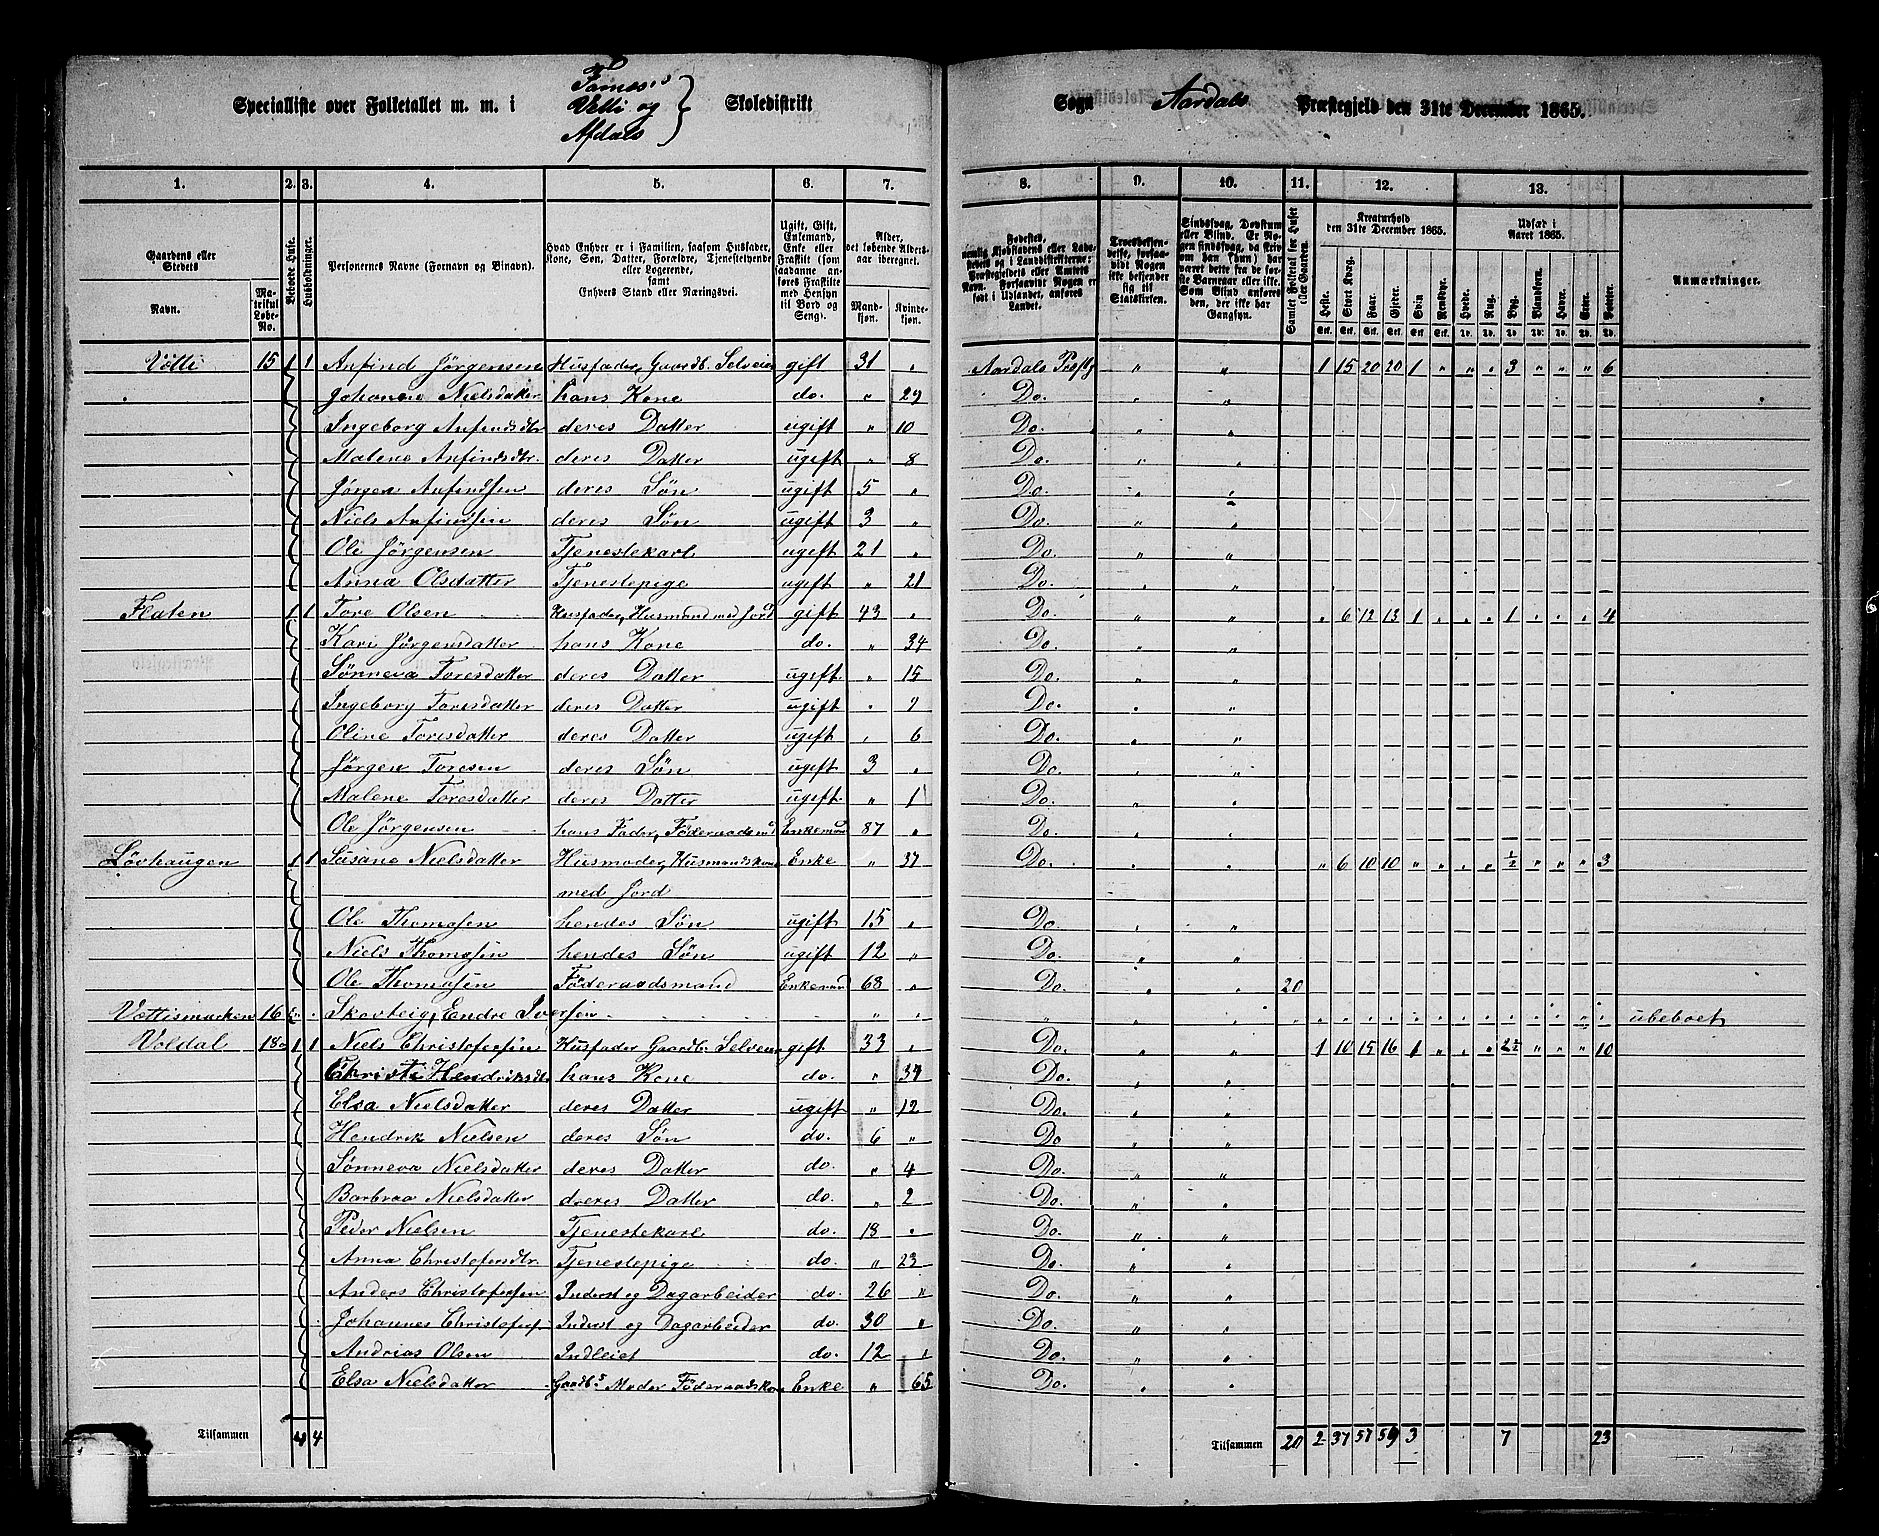 Specialliste over Folketallet m. m. i Farnes, Vetti og Afdals Skoledistrikt
Sogn Aardals Præstegjeld den 31te December 1865.
1. 2. 3. 4. 5. 6. 7. 8. 9. 10. 11. 12. 13.
Gaardens eller Stedets
Navn.
Matrikul Løbe-No.
Beboede Huse.
Husholdninger.
Personernes Navne (Fornavn og Binavn).
Hvad Enhver er i Familien, saasom Husfader, Kone, Søn, Datter, Forældre, Tjenestetyende eller Logerende, samt Enhvers Stand eller Næringsvei.
Ugift, Gift, Enkemand, Enke eller Fraskilt (som saadanne anføres Fraskilte med Hensyn til Bord og Seng).
Alder, det løbende Aldersaar iberegnet.
Mandkjøn. Kvindekjøn.
Fødested,
Troesbekjendelse, forsaavidt Nogen ikke bekjender sig til Statskirken.
Sindssvag, Døvstum eller Blind.
Samlet Folketal for Huset eller Gaarden.
Kreaturhold den 31te December 1865.
Heste. Stort Kvæg. Faar. Gjeder. Svin Rensdyr.
Udsæd i Aaret 1865.
Hvede. Rug. Byg. Blandkorn. Havre. Erter. Poteter.
Anmærkninger.
Vetti 15 1 1 Anfind Jørgensen Husfader, Gaardb. Selveier gift 31 " Aardals Præstg " " 1 15 20 20 1 " " " 3 " " " 6
Johanne Nielsdatter hans Kone do. " 29 Do.
Ingeborg Anfindsdtr deres Datter ugift " 10 Do.
Malene Anfindsdtr. deres Datter ugift " 8 Do.
Jørgen Anfindsen deres Søn ugift 5 " Do.
Niels Anfindsen deres Søn ugift 3 " Do.
Ole Jørgensen Tjenestekarl ugift 21 " Do.
Anna Olsdatter Tjenestepige ugift " 21 Do.
Flaten 1 1 Tore Olsen Husfader, Husmand med Jord gift 43 " Do. " " " 6 12 13 1 " " " 1 " " " 4
Kari Jørgensdatter hans Kone do. " 34 Do.
Sønneva Toresdatter deres Datter ugift " 15 Do.
Ingeborg Toresdatter deres Datter ugift " 9 Do.
Oline Toresdatter deres Datter ugift " 6 Do.
Jørgen Toresen deres Søn ugift 3 " Do.
Malene Toresdatter deres Datter ugift " 1 Do.
Ole Jørgensen hans Fader, Føderaadsmd Enkemand 87 " Do.
Løvhaugen 1 1 Susane Nielsdatter Husmoder, Husmandskone Enke " 37 Do. " " " 6 10 10 " " " " ½ " " " 3
med Jord
Ole Thomasen hendes Søn ugift 15 " Do.
Niels Thomasen hendes Søn ugift 12 " Do.
Ole Thomasen Føderaadsmand Enkemand 68 " Do. 20
Vættismarken 16 Skovteig, Endre Iversen ubeboet
Voldal 18a 1 1 Niels Christofersen Husfader Gaardb. Selveier gift 33 " Do. " " 1 10 15 16 1 " " " 2½ " " " 10
Christi Hendriksdtr hans Kone do. " 37 Do.
Elsa Nielsdatter deres Datter ugift " 12 Do.
Hendrik Nielsen deres Søn do. 6 " Do.
Sønneva Nielsdatter deres Datter do. " 4 Do.
Barbraa Nielsdatter deres Datter do. " 2 Do.
Peder Nielsen Tjenestekarl do. 18 " Do.
Anna Christofersdtr. Tjenestepige do. " 23 Do.
Anders Christofersen Inderst og Dagarbeider do. 26 " Do.
Johannes Christofers. Inderst og Dagarbeider do. 30 " Do.
Andreas Olsen Indleiet do. 12 " Do.
Elsa Nielsdatter Gaardbs Moder Føderaadskone Enke " 65 Do.
Tilsammen 4 4
Tilsammen 20 2 37 57 59 3 7 23